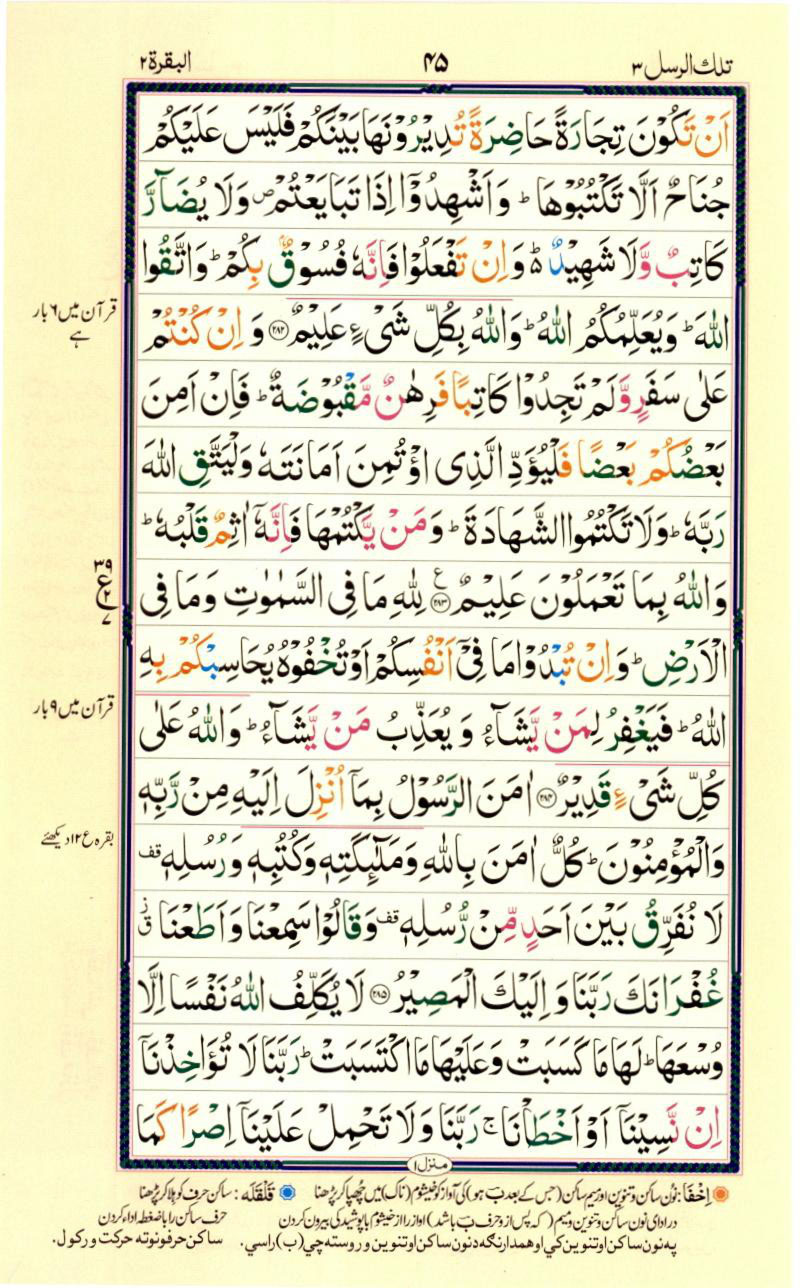 تلك الرسل ٣
٤٥
البقرة ٢
اَنْ تَكُوْنَ تِجَارَةً حَاضِرَةً تُدِيْرُوْنَهَا بَيْنَكُمْ فَلَيْسَ عَلَيْكُمْ
جُنَاحٌ اَلَّا تَكْتُبُوْهَا ؕ وَاَشْهِدُوْۤا اِذَا تَبَايَعْتُمْ ۪ وَلَا يُضَآرَّ
كَاتِبٌ وَّلَا شَهِيْدٌ ؕ۬ وَاِنْ تَفْعَلُوْا فَاِنَّهٗ فُسُوْقٌۢ بِكُمْ ؕ وَاتَّقُوا
اللّٰهَ ؕ وَيُعَلِّمُكُمُ اللّٰهُ ؕ وَاللّٰهُ بِكُلِّ شَیْءٍ عَلِيْمٌ ﴿۲۸۲﴾ وَ اِنْ كُنْتُمْ
عَلٰى سَفَرٍ وَّلَمْ تَجِدُوْا كَاتِبًا فَرِهٰنٌ مَّقْبُوْضَةٌ ؕ فَاِنْ اَمِنَ
بَعْضُكُمْ بَعْضًا فَلْيُؤَدِّ الَّذِى اؤْتُمِنَ اَمَانَتَهٗ وَلْيَتَّقِ اللّٰهَ
رَبَّهٗ ؕ وَلَا تَكْتُمُوا الشَّهَادَةَ ؕ وَمَنْ يَّكْتُمْهَا فَاِنَّهٗۤ اٰثِمٌ قَلْبُهٗ ؕ
وَاللّٰهُ بِمَا تَعْمَلُوْنَ عَلِيْمٌ ﴿۲۸۳﴾ ع لِلّٰهِ مَا فِى السَّمٰوٰتِ وَمَا فِى
الْاَرْضِ ؕ وَاِنْ تُبْدُوْا مَا فِىْۤ اَنْفُسِكُمْ اَوْ تُخْفُوْهُ يُحَاسِبْكُمْ بِهِ
اللّٰهُ ؕ فَيَغْفِرُ لِمَنْ يَّشَآءُ وَ يُعَذِّبُ مَنْ يَّشَآءُ ؕ وَاللّٰهُ عَلٰى
كُلِّ شَیْءٍ قَدِيْرٌ ﴿۲۸۴﴾ اٰمَنَ الرَّسُوْلُ بِمَاۤ اُنْزِلَ اِلَيْهِ مِنْ رَّبِّهٖ
وَالْمُؤْمِنُوْنَ ؕ كُلٌّ اٰمَنَ بِاللّٰهِ وَمَلٰٓئِكَتِهٖ وَكُتُبِهٖ وَرُسُلِهٖ قف
لَا نُفَرِّقُ بَيْنَ اَحَدٍ مِّنْ رُّسُلِهٖ قف وَقَالُوْا سَمِعْنَا وَاَطَعْنَا ز ق
غُفْرَانَكَ رَبَّنَا وَ اِلَيْكَ الْمَصِيْرُ ﴿۲۸۵﴾ لَا يُكَلِّفُ اللّٰهُ نَفْسًا اِلَّا
وُسْعَهَا ؕ لَهَا مَا كَسَبَتْ وَعَلَيْهَا مَا اكْتَسَبَتْ ؕ رَبَّنَا لَا تُؤَاخِذْنَاۤ
اِنْ نَّسِيْنَاۤ اَوْ اَخْطَاْنَا ۚ رَبَّنَا وَلَا تَحْمِلْ عَلَيْنَاۤ اِصْرًا كَمَا
منزل ١
قرآن میں ٦ بار
ہے
٣٩
ع
٢
٧
قرآن میں ٩ بار
بقرہ ع ١٢ دیکھئے
اِخْفَا: نون ساکن و تنوین اور میم ساکن (جس کے بعد بَ ہو) کی آواز کو خیشوم (ناک) میں چھپا کر پڑھنا قَلْقَلَہ: ساکن حرف کو ہلا کر پڑھنا
در ادای نون ساکن و تنوین و میم (که پس از و حرف بَ باشد) اواز را از خیشوم با پوشیدگی بیرون کردن حرف ساکن را با ضغطه اداء کردن
په نون ساکن او تنوین کي او همدارنګه د نون ساکن او تنوین و روسته چي (ب) راسي. ساکن حرفونو ته حرکت ورکول.